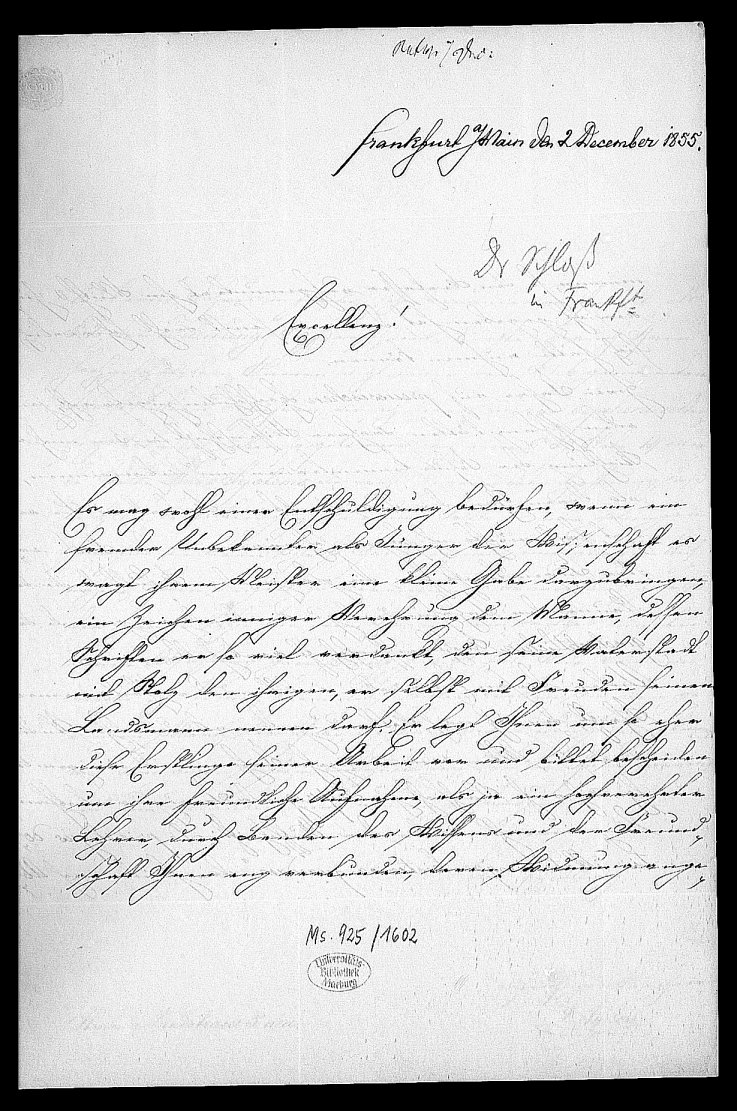 Frankfurt a/Main den 2 December 1855.
Dr Schloß
in Frankft
Excellenz!
Es mag wohl einer Entschuldigung bedürfen, wenn ein
fremder Unbekannter als Jünger der Wissenschaft es
wagt ihrem Meister eine kleine Gabe darzubringen,
ein Zeichen inniger Verehrung dem Manne, dessen
Schriften er so viel verdankt, den seine Vaterstadt
mit Stolz den ihrigen, er selbst mit Freuden seinen
Landsmann nennen darf. Er legt Ihnen um so eher
diese Erstlinge seiner Arbeit vor und bittet bescheiden
um ihre freundliche Aufnahme, als ja ein hochverehrter
Lehrer, durch Banden des Wissens und der Freund-
schaft Ihnen eng verbunden, deren Widmung ange-
Ms. 925/1602
Universitäts-
Bibliothek
Marburg